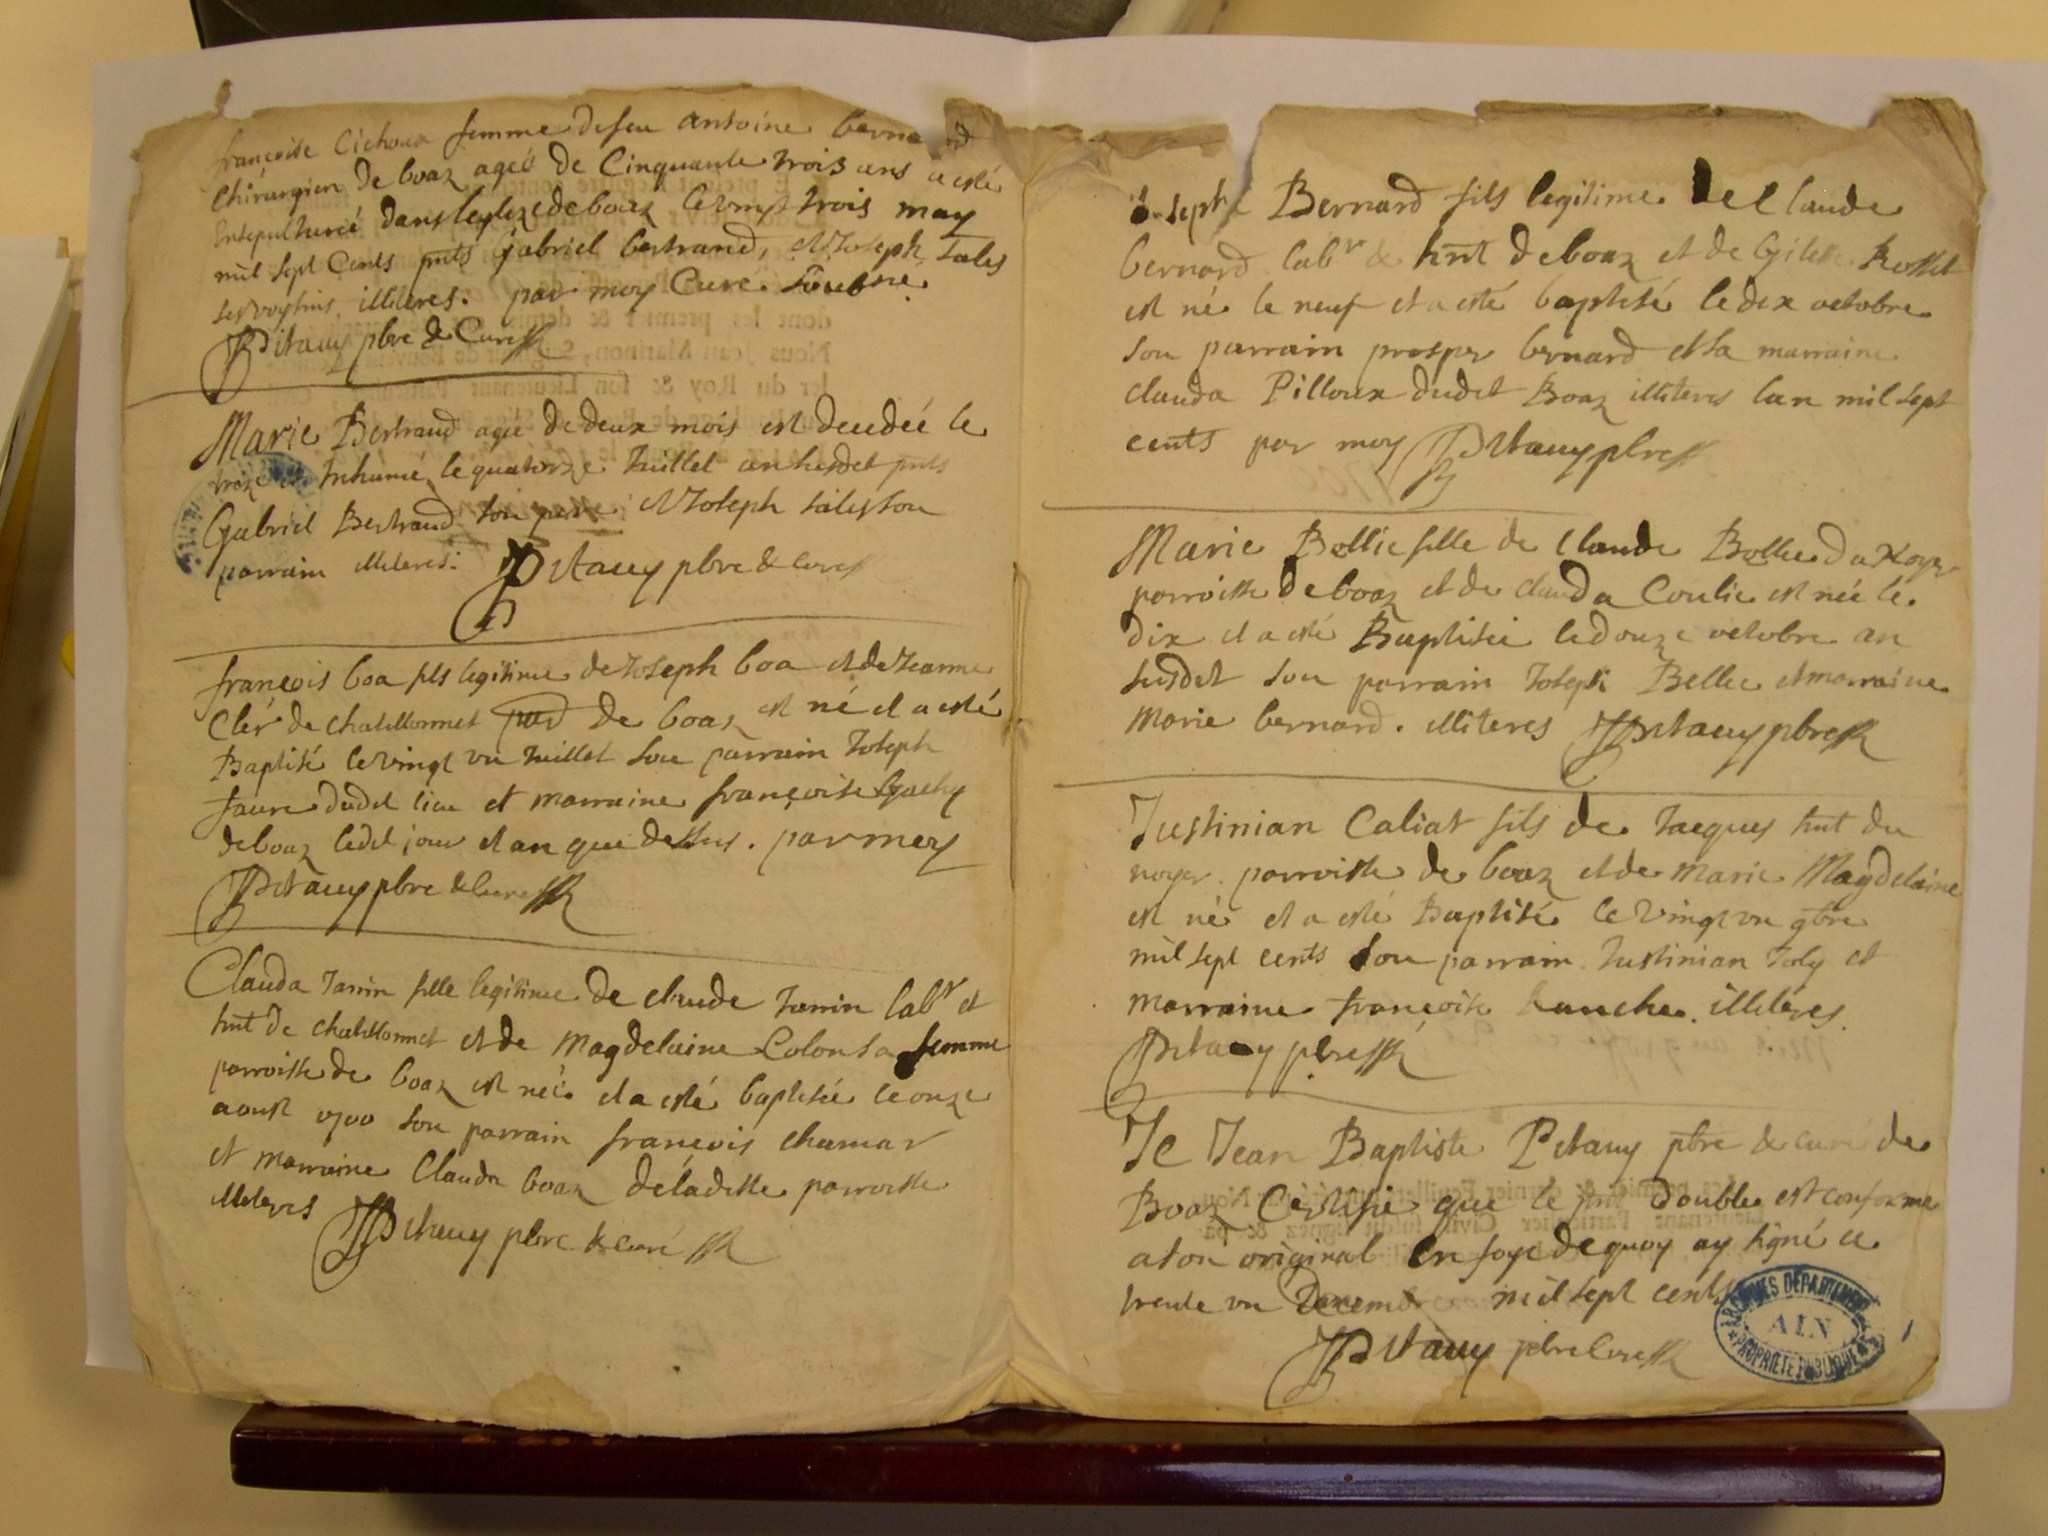 françoise Cichoux femme de feu antoine berna rd
chirurgien de boaz ageé de Cinquante trois ans a esté
Ensepultureé dans leglize de boaz le vingt trois may
mil sept Cents pnts gabriel bertrand, et Joseph sales
ses voysins illiteres. par moy Curé soubné
JB Petauy pbre & Curé
Marie Bertrand ageé de deux mois est decedeé le
treze et Inhumé le quatorze Juillet an susdet pnts
Gabriel Bertrand son pere et Joseph sales son
parrain illiteres. JB Petauy pbre & curé
françois boa fils legitime de Joseph boa et de Jeanne
Cler de chatillonnet pard de boaz est né et a esté
Baptisé le vingt un Juillet son parrain Joseph
faure dudet lieu et marraine françoise Gachy
de boaz ledet jour et an que dessus. par moy
JB Petauy pbre & curé
Clauda Janin fille legitime de claude Janin labr et
hnt de chatillonnet et de Magdelaine Colonsa femme
parroisse de boaz est neé et a esté baptisée le onze
aoust 1700 son parrain françois chamar
et marraine Clauda boaz de laditte parroisse
illiteres JB Petauy pbre & curé
Joseph Bernard fils legitime de Claude
bernard labr & hnt de boaz et de Gilette Rosset
est né le neuf et a esté baptisé le dix octobre
son parrain prosper bernard et sa marraine
clauda Pilloux dudet Boaz illiteres lan mil sept
cents par moy JB Petauy pbre
Marie Bollie fille de Claude Bollie du Noyer
parroisse de boaz et de clauda Coulie est née le
dix et a esté Baptisée le douze octobre an
susdet son parrain Joseph Bellie et marraine
Marie bernard. illiteres JB Petauy pbre
Justinian Caliat fils de Jacques hnt du
noyer parroisse de boaz et de Marie Magdelaine
est né et a esté Baptisé le vingt un 9bre
mil sept cents son parrain Justinian Joly et
marraine françoise illiteres.
JB Petauy pbre
Je Jean Baptiste Petauy pbre & curé de
Boaz Certifie que le pnt double est conforme
a son original en foye de quoy ay signé ce
trente un Decembre mil sept cents
JB Petauy pbre Curé
ARCHIVES DEPARTEMENTALES
AIN
PROPRIETE PUBLIQUE